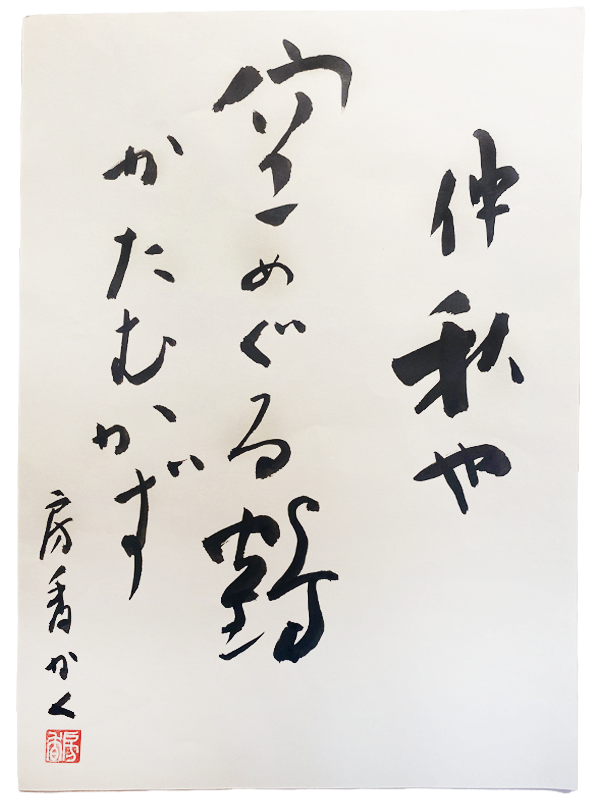 仲秋や
空めぐる鶴
かたむかず
房香かく
房香